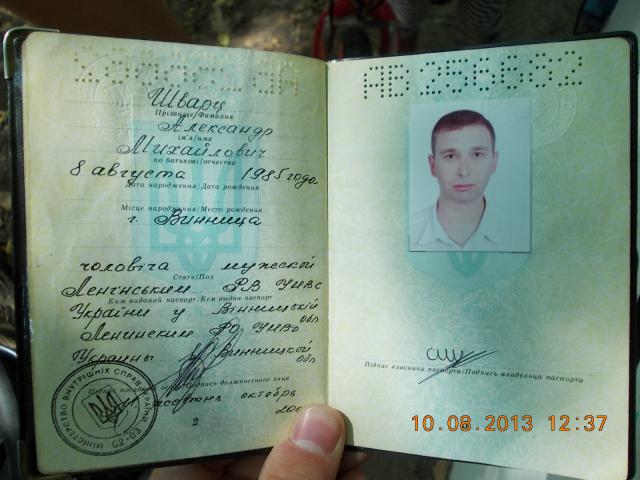 Шварц
Прізвище/Фамилия
Александр
ім'я/имя
Михайлович
по батькові/отчество
8 августа 1985 года
Дата народження/Дата рождения
Місце народження/Место рождения
г. Винница
чоловіча мужской
Стать/Пол
Ленінським РВ УМВС
Ким виданий паспорт/Кем выдан паспорт
України у Вінницькій обл
Ленинским РО УМВД
Украины Винницкой обл
Підпис посадової особи/Подпись должностного лица
жовтня октября
МІНІСТЕРСТВО ВНУТРІШНІХ СПРАВ УКРАЇНИ
2
АВ
Підпис власника паспорта/Подпись владельца паспорта
10.08.2013 12:37